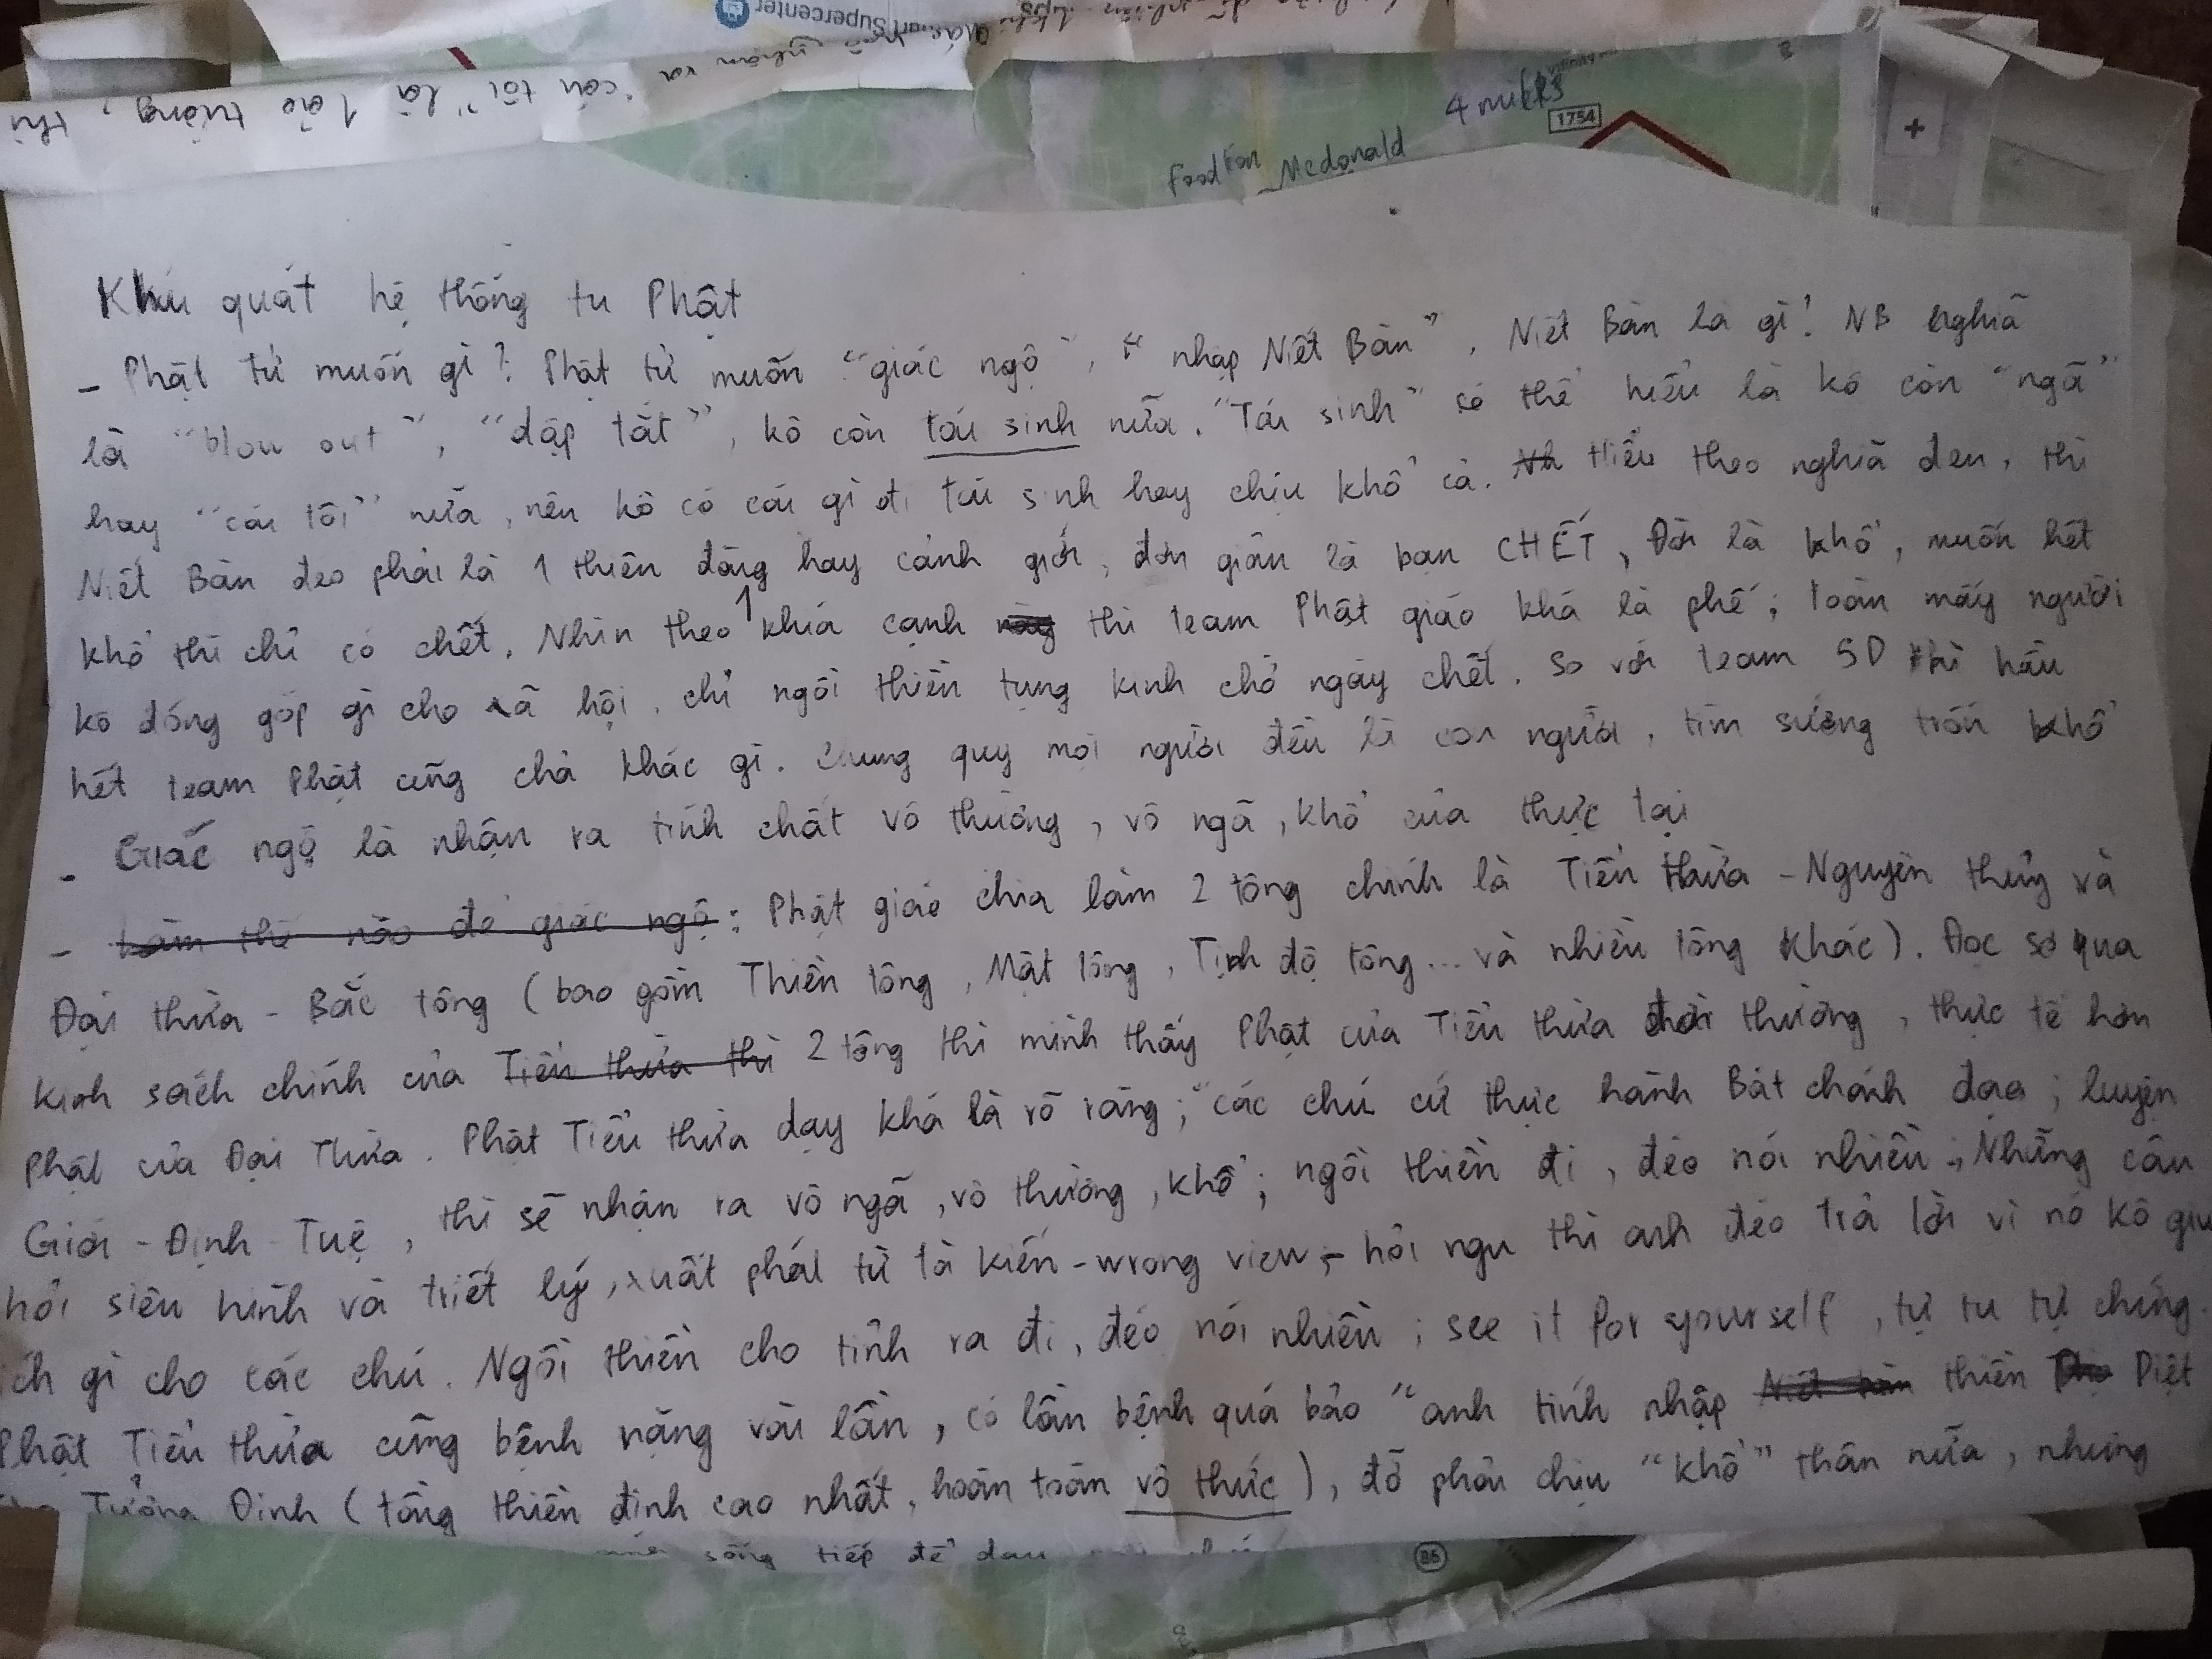 Supercenter
"cái tôi" là 1 ảo tưởng, thì
4 miles
1754
Food Lion _ Mcdonald
Khái quát hệ thống tu Phật
- Phật tử muốn gì? Phật tử muốn "giác ngộ", "nhập Niết Bàn". Niết Bàn là gì? NB nghĩa
là "blow out", "dập tắt", kô còn tái sinh nữa. "Tái sinh" có thể hiểu là kô còn "ngã"
hay "cái tôi" nữa, nên kô có cái gì đi tái sinh hay chịu khổ cả. Hiểu theo nghĩa đen, thì
Niết Bàn đéo phải là 1 thiên đàng hay cảnh giới, đơn giản là bạn CHẾT, Đời là khổ, muốn hết
khổ thì chỉ có chết. Nhìn theo 1 khía cạnh này thì team Phật giáo khá là phế; toàn mấy người
kô đóng góp gì cho xã hội, chỉ ngồi thiền tụng kinh chờ ngày chết. So với team SD thì hầu
hết team Phật cũng chả khác gì. Chung quy mọi người đều là con người, tìm sướng trốn khổ
- Giác ngộ là nhận ra tính chất vô thường, vô ngã, khổ của thực tại
- Làm thế nào để giác ngộ: Phật giáo chia làm 2 tông chính là Tiểu thừa - Nguyên thủy và
Đại thừa - Bắc tông (bao gồm Thiền tông, Mật tông, Tịnh độ tông... và nhiều tông khác). Đọc sơ qua
kinh sách chính của Tiểu thừa thì 2 tông thì mình thấy Phật của Tiểu thừa đời thường, thực tế hơn
Phật của Đại Thừa. Phật Tiểu thừa dạy khá là rõ ràng; "các chú cứ thực hành Bát chánh đạo; luyện
Giới - Định - Tuệ, thì sẽ nhận ra vô ngã, vô thường, khổ; ngồi thiền đi, đéo nói nhiều; Những câu
hỏi siêu hình và triết lý, xuất phát từ tà kiến - wrong view; - hỏi ngu thì anh đéo trả lời vì nó kô giú
ích gì cho các chú. Ngồi thiền cho tỉnh ra đi, đéo nói nhiều; see it for yourself, tự tu tự chứng.
Phật Tiểu thừa cũng bệnh nặng vài lần, có lần bệnh quá bảo "anh tính nhập Niết bàn thiền Diệt
Tưởng Định (tầng thiền định cao nhất, hoàn toàn vô thức), đỡ phải chịu "khổ" thân nữa, nhưng
sống tiếp để
86